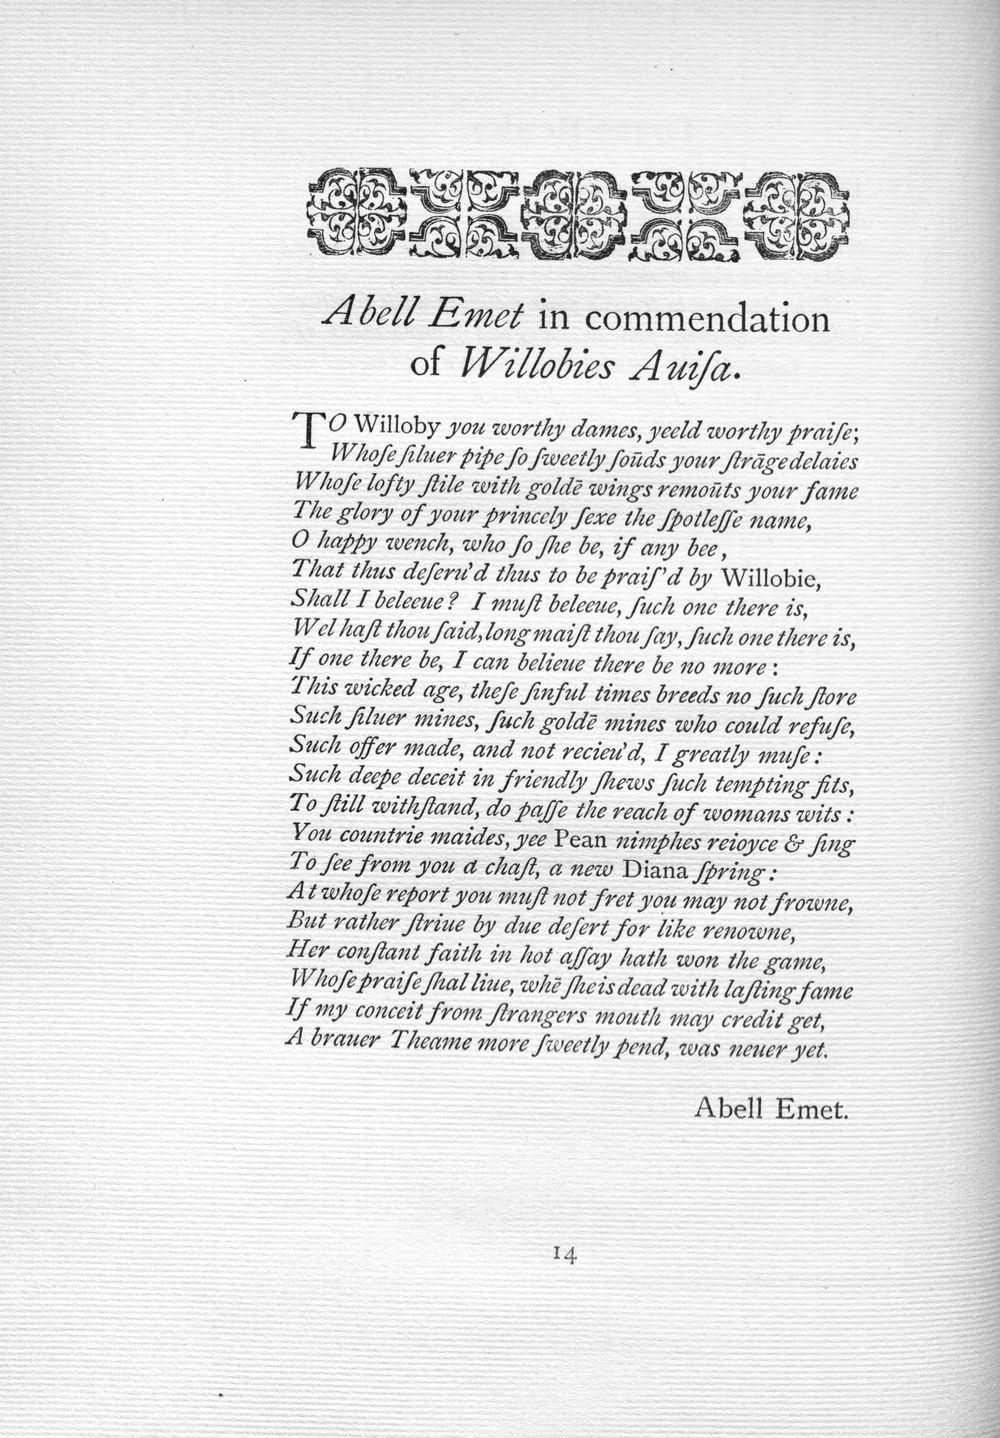 Abell Emet in commendation
of Willobies Auiſa.
TO Willoby you worthy dames, yeeld worthy praiſe;
Whoſe ſiluer pipe ſo ſweetly ſoūds your ſtrāge delaies
Whoſe lofty ſtile with goldē wings remoūts your fame
The glory of your princely ſexe the ſpotleſſe name,
O happy wench, who ſo ſhe be, if any bee,
That thus deſeru'd thus to be praiſ'd by Willobie,
Shall I beleeue? I muſt beleeue, ſuch one there is,
Wel haſt thou ſaid, long maiſt thou ſay, ſuch one there is,
If one there be, I can belieue there be no more:
This wicked age, theſe ſinful times breeds no ſuch ſtore
Such ſiluer mines, ſuch goldē mines who could refuſe,
Such offer made, and not recieu'd, I greatly muſe:
Such deepe deceit in friendly ſhews ſuch tempting fits,
To ſtill withſtand, do paſſe the reach of womans wits:
You countrie maides, yee Pean nimphes reioyce & ſing
To ſee from you a chaſt, a new Diana ſpring:
At whoſe report you muſt not fret you may not frowne,
But rather ſtriue by due deſert for like renowne,
Her conſtant faith in hot aſſay hath won the game,
Whoſe praiſe ſhal liue, whē ſhe is dead with laſting fame
If my conceit from ſtrangers mouth may credit get,
A brauer Theame more ſweetly pend, was neuer yet.
Abell Emet.
14